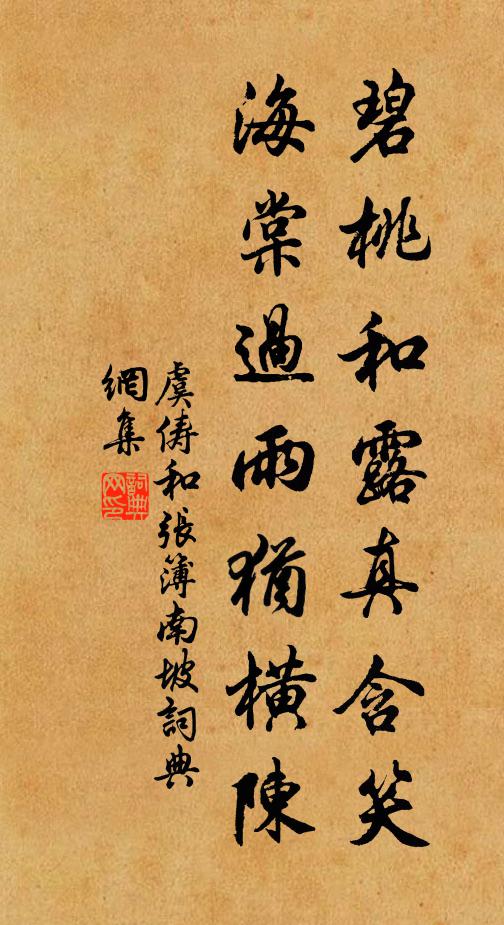 碧桃和露真含笑
海棠過雨猶橫陳
虞儔和張簿南坡詞典
網集
詞典网印